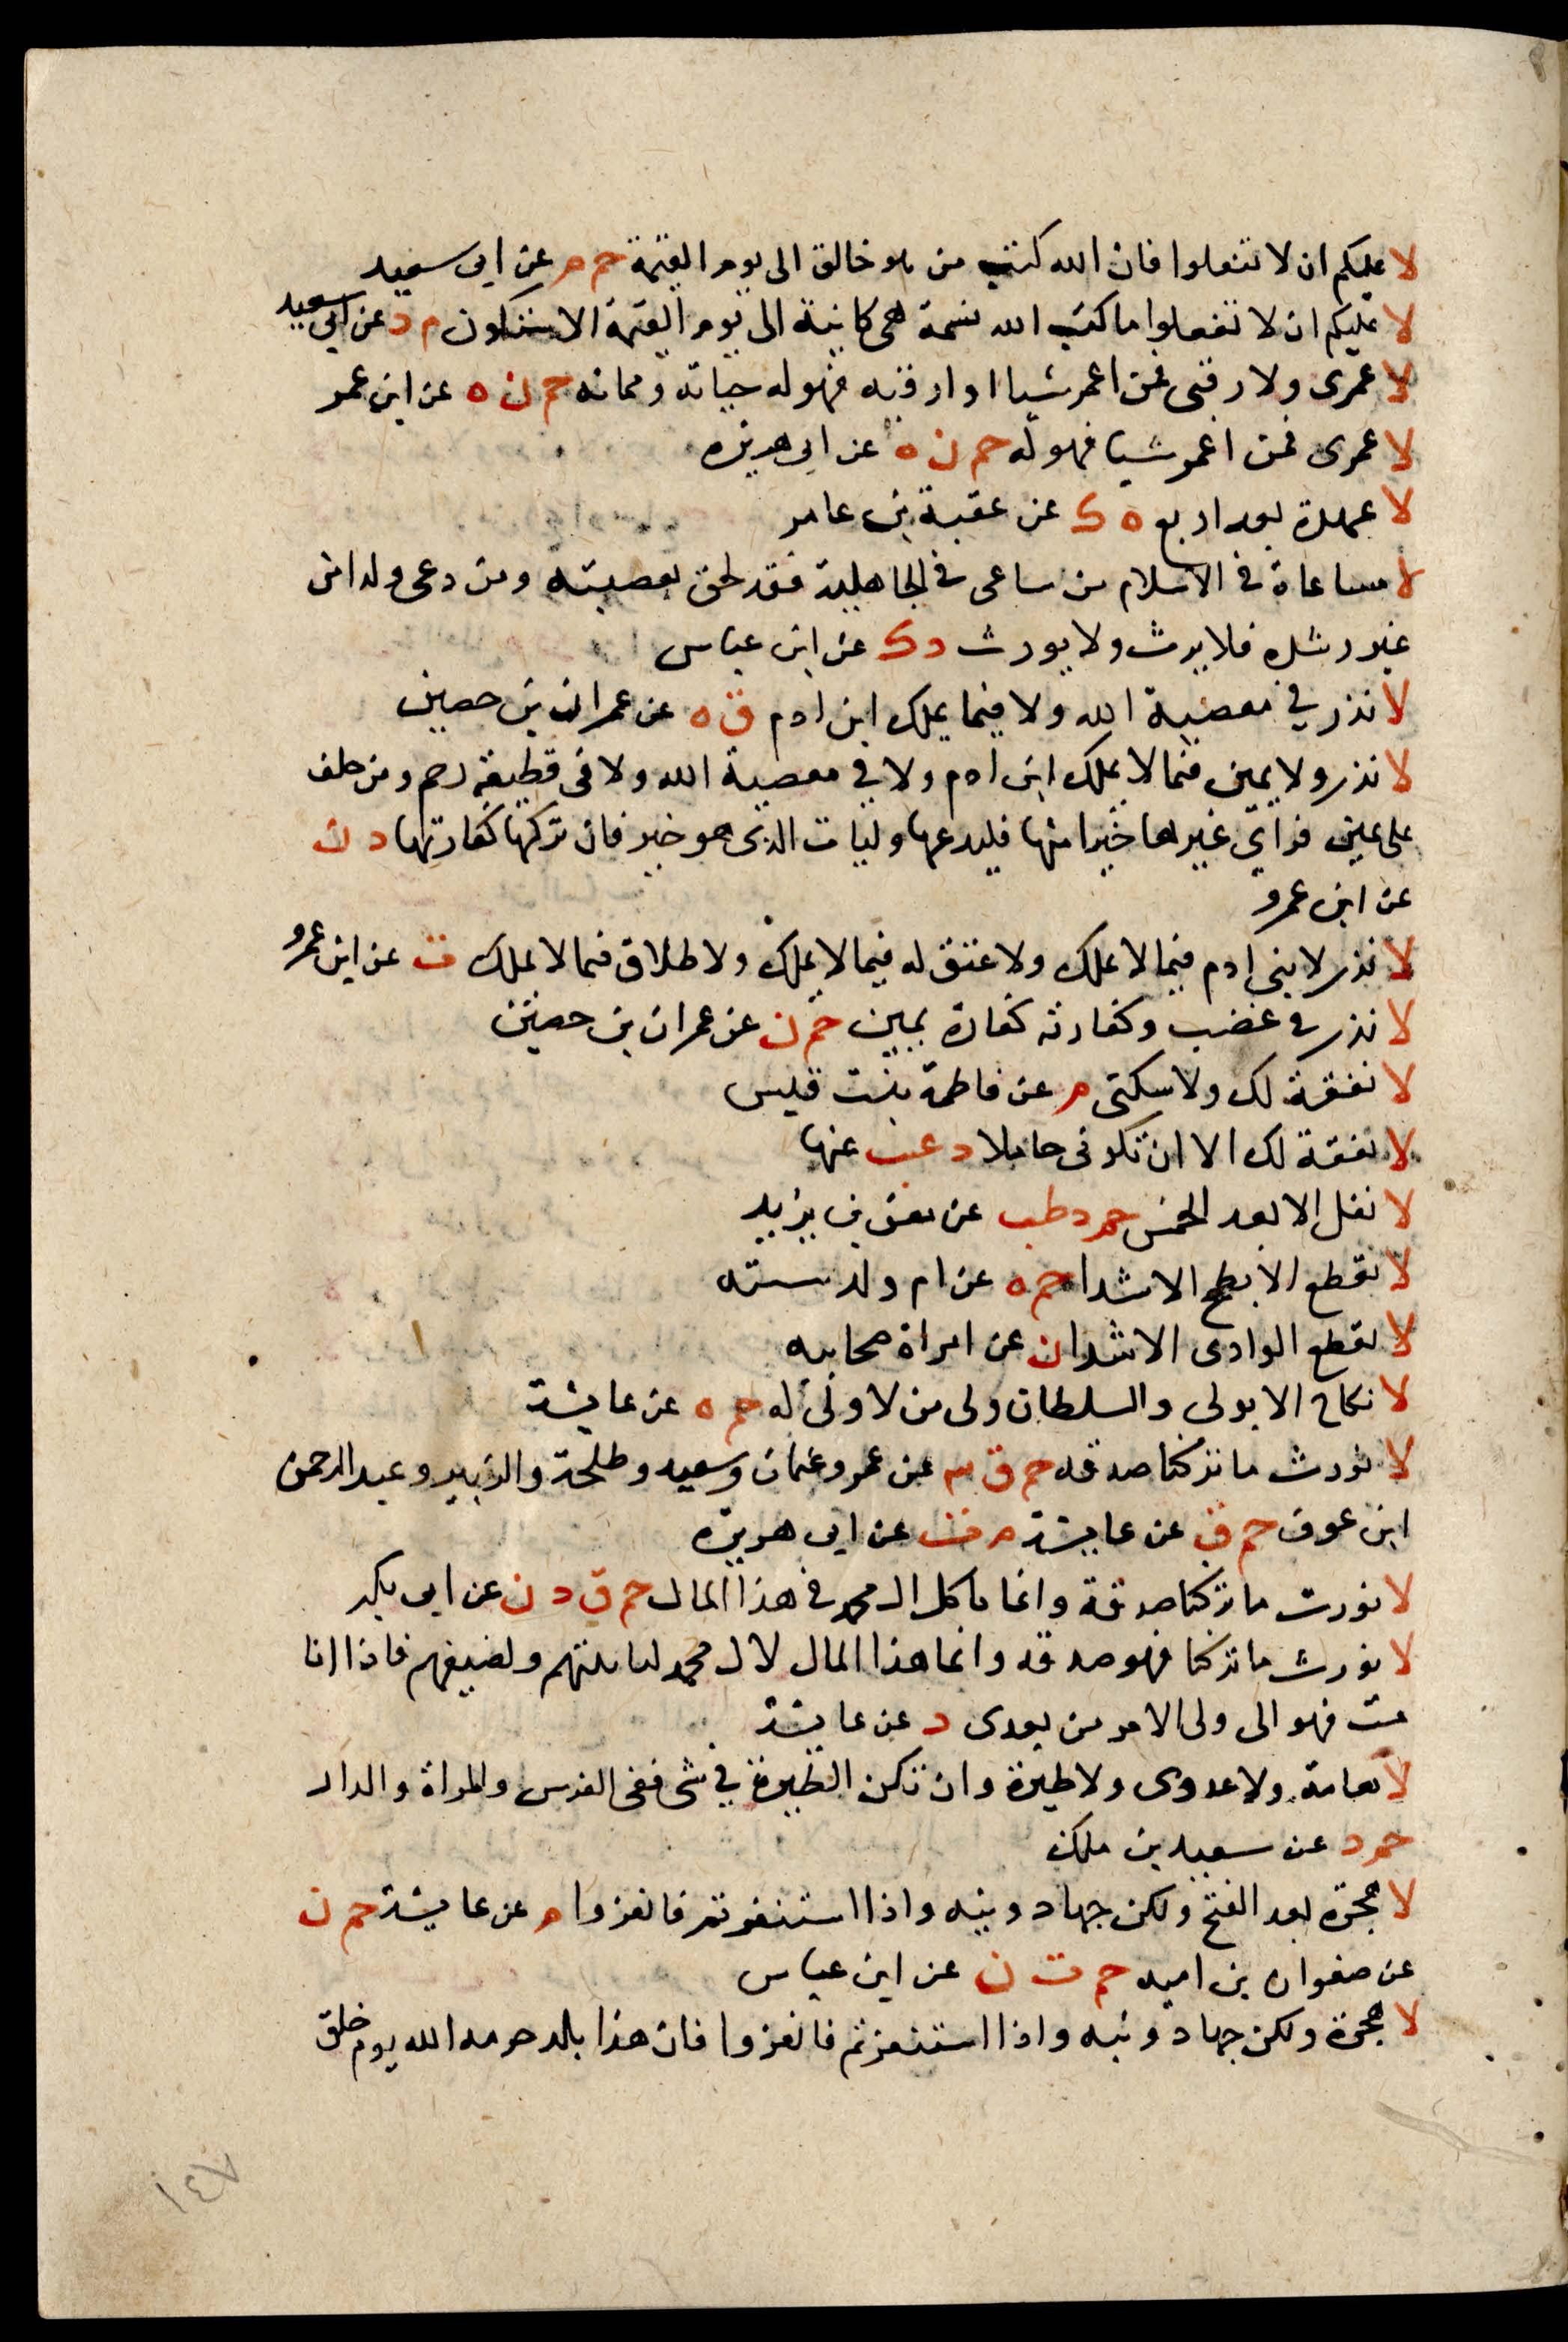 لا عليكم ان لا تفعلوا فان الله كتب من هو خالق الى يوم القيمة حم م عن ابى سعيد
لا عليكم ان لا تفعلوا ما كتب الله نسمة هى كاينة الى يوم القيمة الا ستكون م د عن ابى سعيد
لا عمرى ولا رقبى فمن اعمر شيا او ارقبه فهو له حياته ومماته حم ن ه عن ابن عمر
لا عمرى فمن اعمر شيا فهو له حم ن ه عن ابى هريره
لا عهدة بعد اربع ه ك عن عقبة بن عامر
لا مساعاة فى الاسلام من ساعى فى الجاهلية فقد لحق بعصبته ومن دعى ولدا من
غير رشده فلا يرث ولا يورث د ك عن ابن عباس
لا نذر في معصية الله ولا فيما يملك ابن ادم ق ه عن عمران بن حصين
لا نذر ولا يمين فيما لا يملك ابن ادم ولا في معصية الله ولا فى قطيعة رحم ومن حلف
على يمين فراى غيرها خيرا منها فليدعها وليات الذى هو خير فان تركها كفارتها د ن
عن ابن عمرو
لا نذر لابنى ادم فيما لا يملك ولا عتق له فيما لا يملك ولا طلاق فيما لا يملك ت عن ابن عمرو
لا نذر فى غضب وكفارته كفارة يمين حم ن عن عمران بن حصين
لا نفقة لك ولا سكنى م عن فاطمة بنت قيس
لا نفقة لك الا ان تكونى حاملا د عب عنها
لا نفل الا بعد الخمس حم د طب عن معن بن يزيد
لا نقطع الابطح الا شدا حم ه عن ام ولد
لا نقطع الوادى الا شدا ن عن امراة صحابيه
لا نكاح الا بولى والسلطان ولى من لا ولى له حم ه عن عايشة
لا نورث ما تركنا صدقه حم ق عن عمر وعثمان وسعيد وطلحة والزبير وعبد الرحمن
ابن عوف حم ق عن عايشة م عن ابى هريره
لا نورث ما تركنا صدقة وانما ياكل ال محمد فى هذا المال حم ق د ن عن ابى بكر
لا نورث ما تركنا فهو صدقه وانما هذا المال لال محمد لنائبتهم ولضيفهم فاذا انا
مت فهو الى ولى الامر من بعدى د عن عايشة
لا هامة ولا عدوى ولا طيرة وان تكن الطيرة في شى ففى الفرس والمراة والدار
حم د عن سعيد بن ملك
لا هجرة بعد الفتح ولكن جهاد ونيه واذا استنفرتم فانفروا م عن عايشة حم ن
عن صفوان بن اميه حم ت ن عن ابن عباس
لا هجرة ولكن جهاد ونيه واذا استنفرتم فانفروا فان هذا بلد حرمه الله يوم خلق
١٤٧